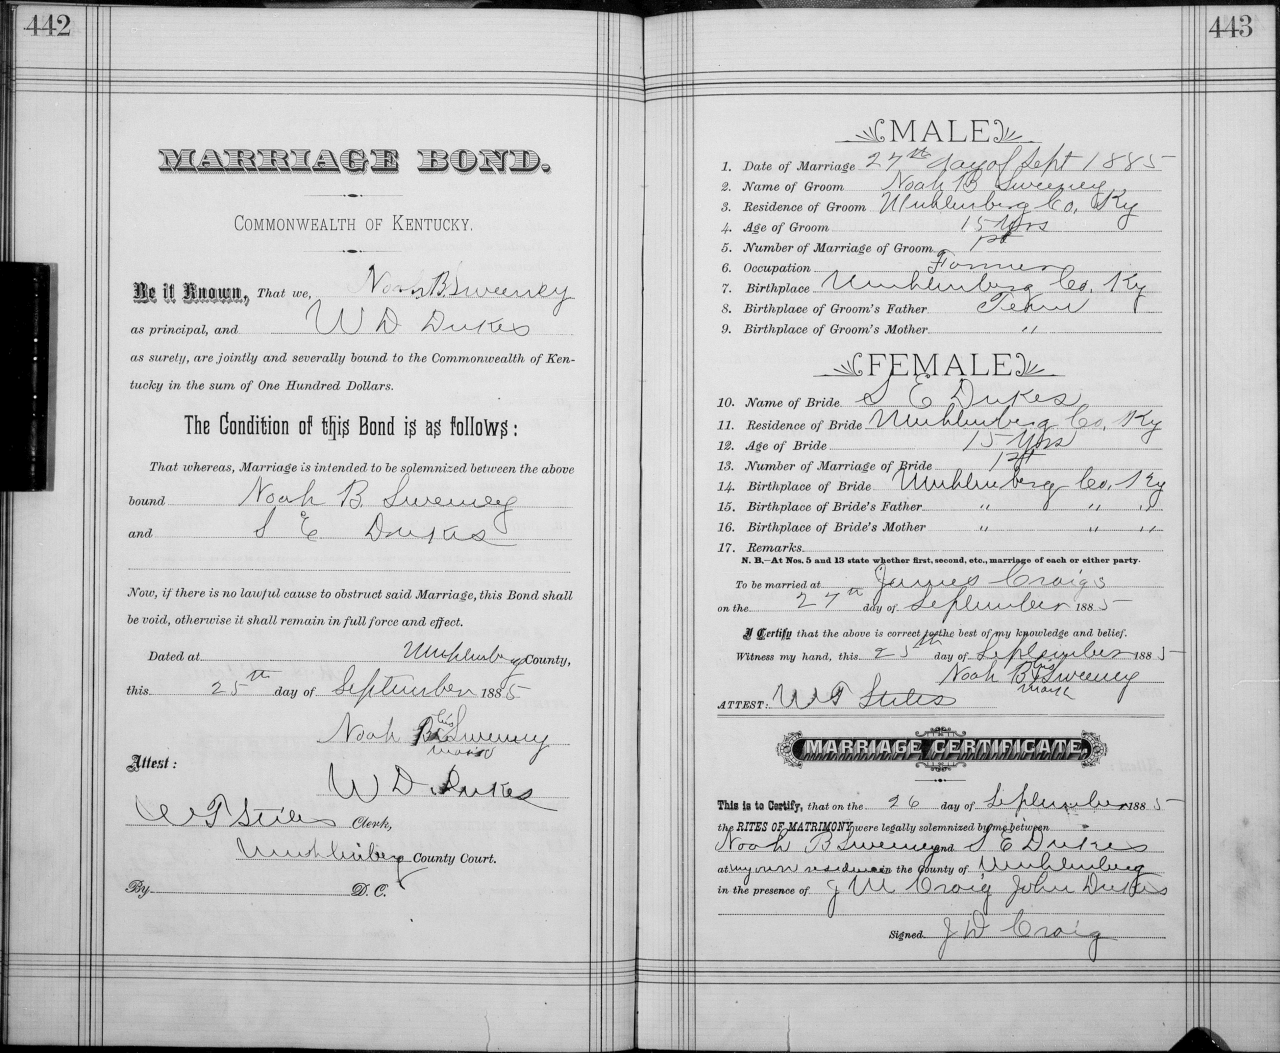 442
MARRIAGE BOND.
COMMONWEALTH OF KENTUCKY.
Be it Known, That we, Noah B Sweeney
as principal, and W D Dukes
as surety, are jointly and severally bound to the Commonwealth of Ken-
tucky in the sum of One Hundred Dollars.
The Condition of this Bond is as follows:
That whereas, Marriage is intended to be solemnized between the above
bound Noah B. Sweeney
and S E Dukes
Now, if there is no lawful cause to obstruct said Marriage, this Bond shall
be void, otherwise it shall remain in full force and effect.
Dated at Muhlenberg County,
this 25th day of September 1885
Noah B his Sweeney
mark
Attest:
W D Dukes
W T Stiles Clerk,
Muhlenberg County Court.
By D. C.
443
MALE
1. Date of Marriage 27th day of Sept 1885
2. Name of Groom Noah B Sweeney
3. Residence of Groom Muhlenberg Co, Ky
4. Age of Groom 15 Yrs
5. Number of Marriage of Groom 1st
6. Occupation Farmer
7. Birthplace Muhlenberg Co, Ky
8. Birthplace of Groom's Father Tenn
9. Birthplace of Groom's Mother "
FEMALE
10. Name of Bride S E Dukes
11. Residence of Bride Muhlenberg Co, Ky
12. Age of Bride 15 Yrs
13. Number of Marriage of Bride 1st
14. Birthplace of Bride Muhlenberg Co, Ky
15. Birthplace of Bride's Father " " "
16. Birthplace of Bride's Mother " " "
17. Remarks
N. B.—At Nos. 5 and 13 state whether first, second, etc., marriage of each or either party.
To be married at James Craigs
on the 27th day of September 1885
I Certify that the above is correct to the best of my knowledge and belief.
Witness my hand, this 25th day of September 1885
Noah B his Sweeney
mark
ATTEST: W T Stiles
MARRIAGE CERTIFICATE.
This is to Certify, that on the 26 day of September 1885
the RITES OF MATRIMONY were legally solemnized by me between
Noah B Sweeney and S E Dukes
at my own residence in the County of Muhlenberg
in the presence of J M Craig John Dukes
Signed J D Craig